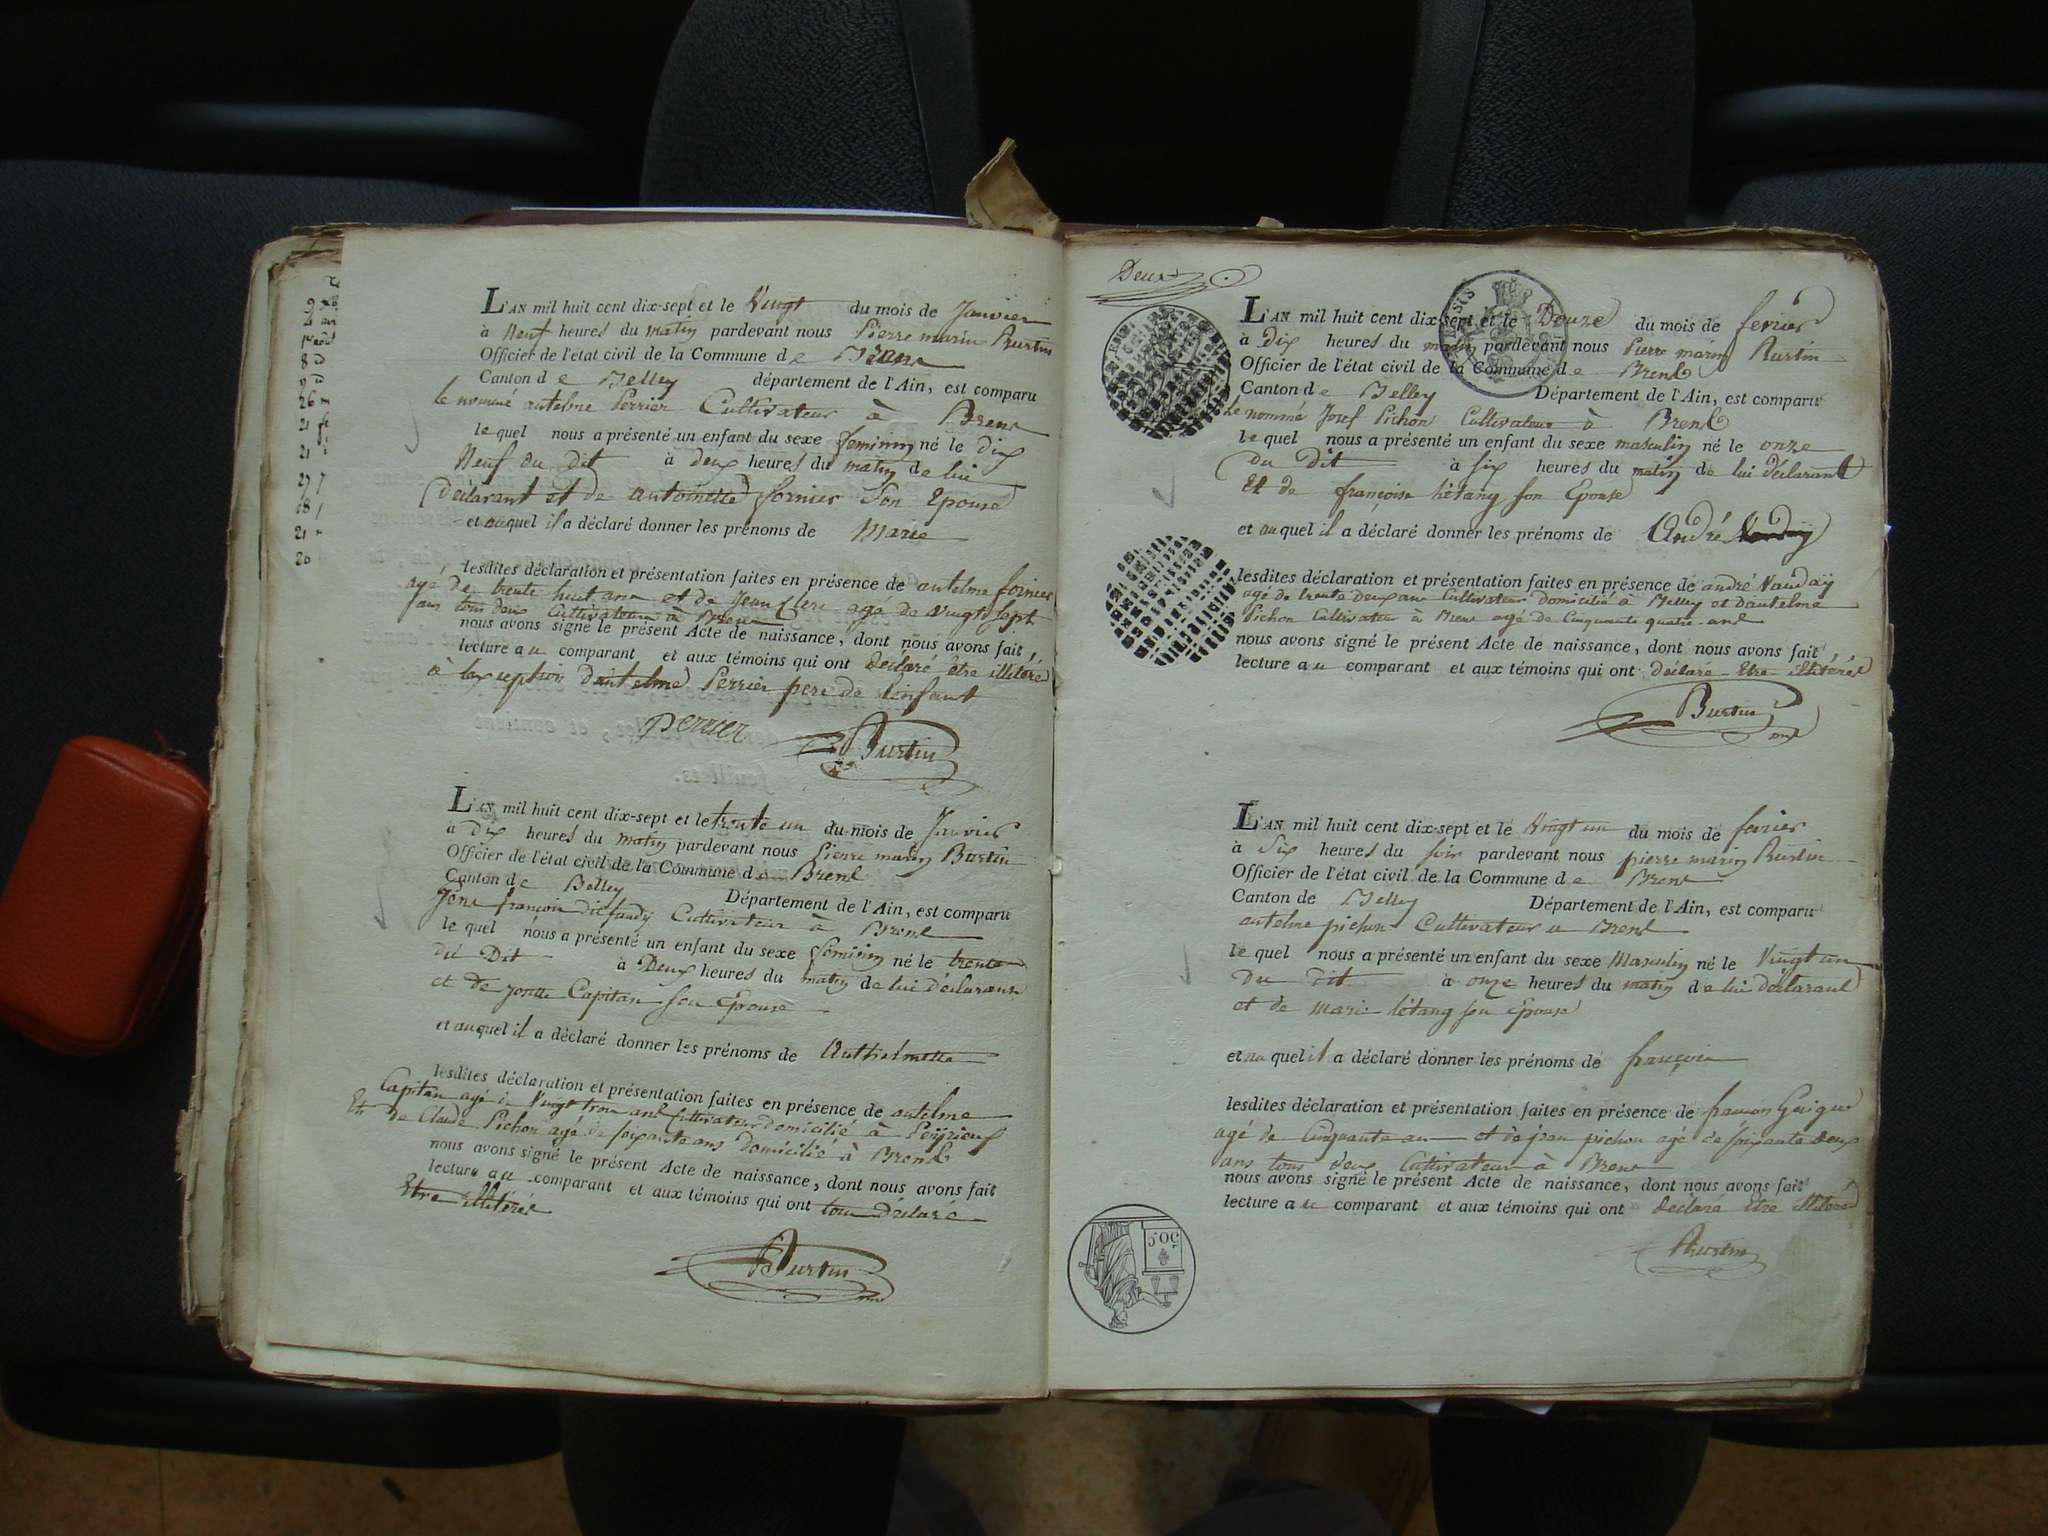 L'AN mil huit cent dix-sept et le Vingt du mois de Janvier
à Neuf heures du matin pardevant nous Pierre marin Burtin
Officier de l'état civil de la Commune de Brens
Canton de Belley département de l'Ain, est comparu
le nommé antelme Perrier Cultivateur à Brens
le quel nous a présenté un enfant du sexe feminin né le dix
Neuf du dit à deux heures du matin de lui
déclarant et de antoinette fornier Son Epouse
et auquel il a déclaré donner les prénoms de Marie
lesdites déclaration et présentation faites en présence de antelme fornier
agé de trente huit ans et de Jean Clerc agé de vingt sept
ans tous deux Cultivateurs à Brens
nous avons signé le présent Acte de naissance, dont nous avons fait
lecture au comparant et aux témoins qui ont déclaré être illitéré
à l'exseption d'antelme Perrier pere de l'enfant
perrier
Burtin
L'AN mil huit cent dix-sept et le trente un du mois de Janvier
à dix heures du matin pardevant nous Pierre marin Burtin
Officier de l'état civil de la Commune de Brens
Canton de Belley Département de l'Ain, est comparu
françois Cultivateur à Brens
le quel nous a présenté un enfant du sexe feminin né le trente
du Dit à Deux heures du matin de lui déclarant
et de Capitan son Epouse
et auquel il a déclaré donner les prénoms de Anthelmette
lesdites déclaration et présentation faites en présence de antelme
Capitan agé de Vingt trois ans Cultivateur domicilié à Peyrieux
Et de Claude Pichon agé de soixante ans domicilié à Brens
nous avons signé le présent Acte de naissance, dont nous avons fait
lecture au comparant et aux témoins qui ont tous déclaré
Etre illitéré
Burtin
Deux
L'AN mil huit cent dix-sept et le Douze du mois de fevrier
à Dix heures du matin pardevant nous Pierre marin Burtin
Officier de l'état civil de la Commune de Brens
Canton de Belley Département de l'Ain, est comparu
Le nommé Josef Pichon Cultivateur à Brens
le quel nous a présenté un enfant du sexe masculin né le onze
du Dit à six heures du matin de lui déclarant
Et de françoise l'étang son Epouse
et auquel il a déclaré donner les prénoms de André
lesdites déclaration et présentation faites en présence de andré Vauday
agé de trente Deux ans Cultivateur domicilié à Belley et d'antelme
Pichon Cultivateur à Brens agé de Cinquante quatre ans
nous avons signé le présent Acte de naissance, dont nous avons fait
lecture au comparant et aux témoins qui ont déclaré Etre illitérés
Burtin
L'AN mil huit cent dix-sept et le Vingt un du mois de fevrier
à Six heures du soir pardevant nous pierre marin Burtin
Officier de l'état civil de la Commune de Brens
Canton de Belley Département de l'Ain, est comparu
antelme pichon Cultivateur a Brens
le quel nous a présenté un enfant du sexe Masculin né le Vingt un
Du Dit à onze heures du matin de lui déclarant
et de marie l'étang son Epouse
et auquel il a déclaré donner les prénoms de françois
lesdites déclaration et présentation faites en présence de françois Guigue
agé de Cinquante an et de jean pichon agé de soixante deux
ans tous deux Cultivateurs à Brens
nous avons signé le présent Acte de naissance, dont nous avons fait
lecture au comparant et aux témoins qui ont déclaré Etre illitéré
Burtin
50 c